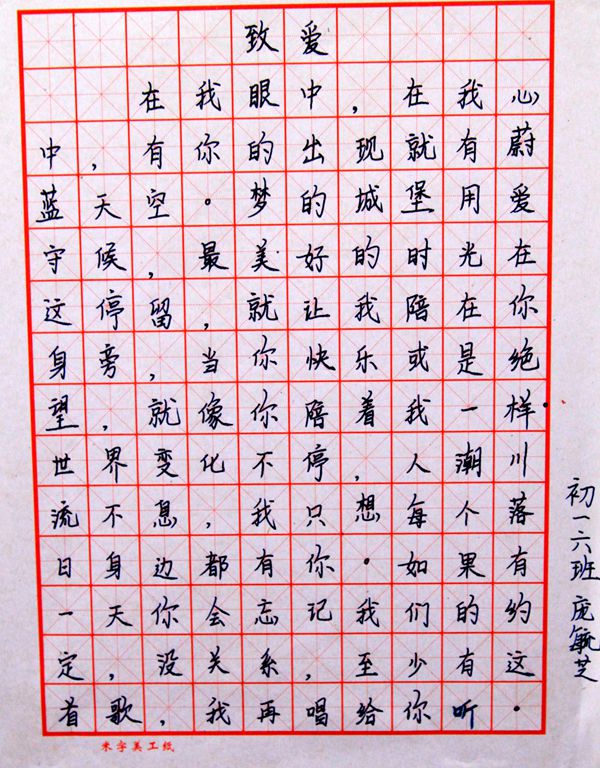 致爱
在我眼中，在我心
中，有你的出现就有蔚
蓝天空。梦的城堡用爱
守候，最美好的时光在
这停留，就让我陪在你
身旁，当你快乐或是绝
望，就像你陪着我一样
世界变化不停，人潮川
流不息，我只想每个落
日身边都有你。如果有
一天你会忘记我们的约
定，没关系，至少有这
首歌，我再唱给你听。
初一六班庞毓芝
米字美工纸